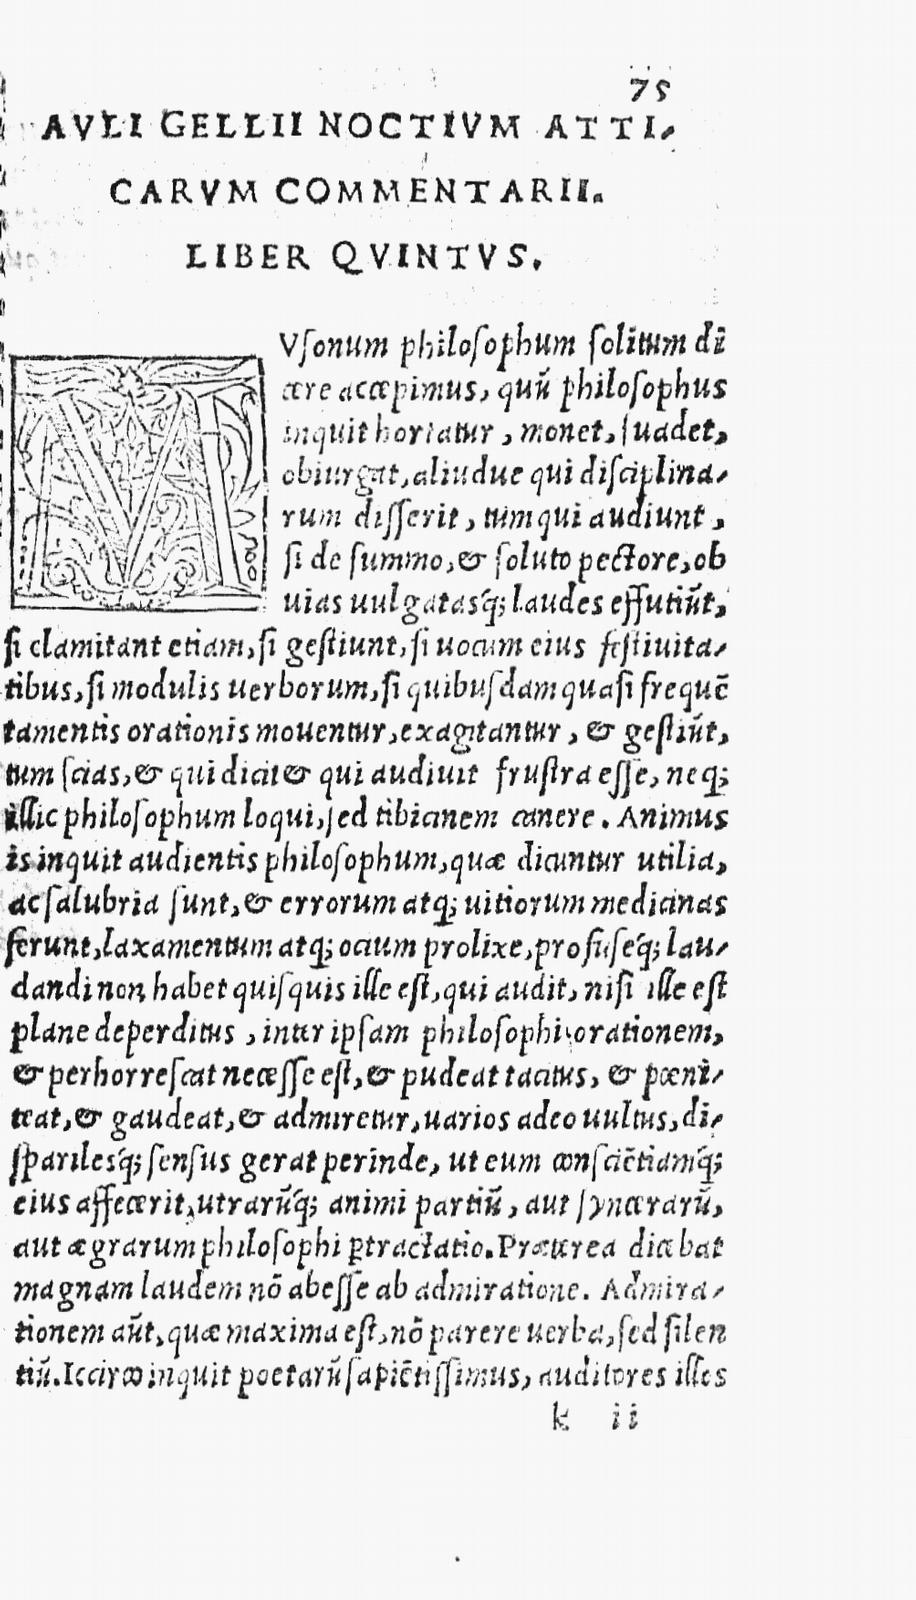 75
AVLI GELLII NOCTIVM ATTI-
CARVM COMMENTARII.
LIBER QVINTVS.
MVſonum philoſophum ſolitum dī
cere accepimus, quū philoſophus
inquit hortatur, monet, ſuadet,
obiurgat, aliudue qui diſciplina-
rum diſſerit, tum qui audiunt,
ſi de ſummo, & ſoluto pectore, ob
uias uulgatasq́; laudes effutiūt,
ſi clamitant etiam, ſi geſtiunt, ſi uocum eius feſtiuita-
tibus, ſi modulis uerborum, ſi quibuſdam quaſi frequē
tamentis orationis mouentur, exagitantur, & geſtiūt,
tum ſcias, & qui dicit & qui audiuit fruſtra eſſe, neq;
illic philoſophum loqui, ſed tibicinem canere. Animus
is inquit audientis philoſophum, quæ dicuntur utilia,
ac ſalubria ſunt, & errorum atq; uitiorum medicinas
ferunt, laxamentum atq; ocium prolixe, profuſeq́; lau-
dandi non habet quiſquis ille eſt, qui audit, niſi ille eſt
plane deperditus, inter ipſam philoſophi orationem,
& perhorreſcat neceſſe eſt, & pudeat tacitus, & pœni-
teat, & gaudeat, & admiretur, uarios adeo uultus, di-
ſparilesq́; ſenſus gerat perinde, ut eum conſciētiamq́;
eius affecerit, utrarūq́; animi partiū, aut ſynceraru͂,
aut ægrarum philoſophi ꝑtractatio. Præterea dicebat
magnam laudem nō abeſſe ab admiratione. Admira-
tionem aūt, quæ maxima eſt, nō parere uerba, ſed ſilen
tiū. Iccirco inquit poetarū ſapiētiſſimus, auditores illos
k ii